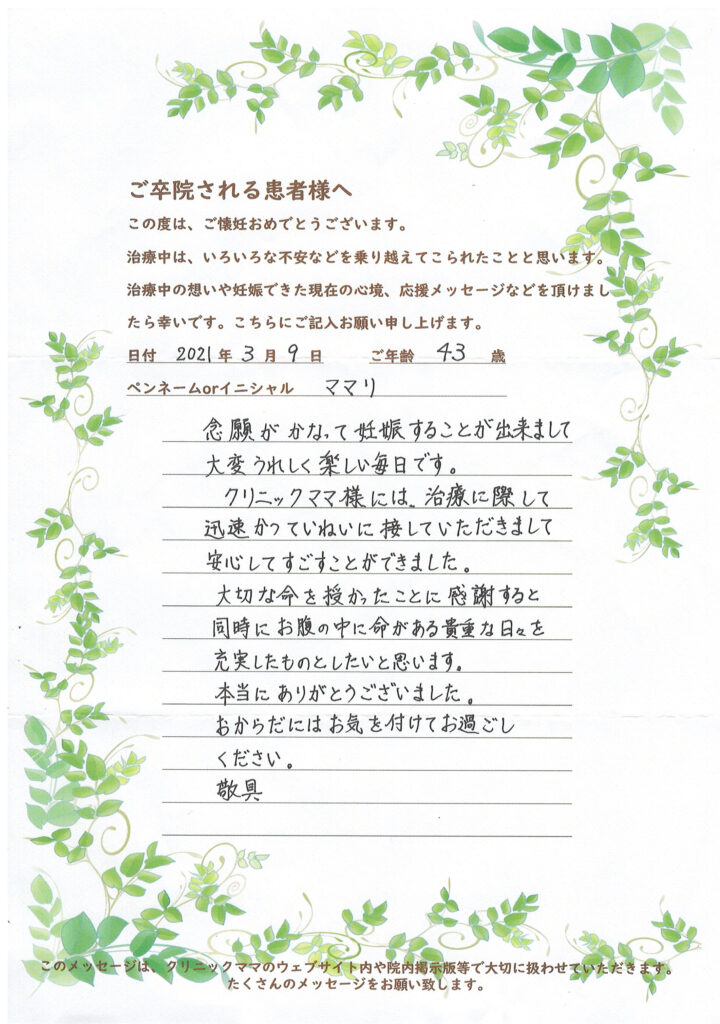 ご卒院される患者様へ
この度は、ご懐妊おめでとうございます。
治療中は、いろいろな不安などを乗り越えてこられたことと思います。
治療中の想いや妊娠できた現在の心境、応援メッセージなどを頂けまし
たら幸いです。こちらにご記入お願い申し上げます。
日付 2021年 3月 9日 ご年齢 43 歳
ペンネームorイニシャル ママリ
念願がかなって妊娠することが出来まして
大変うれしく楽しい毎日です。
クリニックママ様には、治療に際して
迅速かつていねいに接していただきまして
安心してすごすことができました。
大切な命を授かったことに感謝すると
同時にお腹の中に命がある貴重な日々を
充実したものとしたいと思います。
本当にありがとうございました。
おからだにはお気を付けてお過ごし
ください。
敬具
このメッセージは、クリニックママのウェブサイト内や院内掲示版等で大切に扱わせていただきます。
たくさんのメッセージをお願い致します。